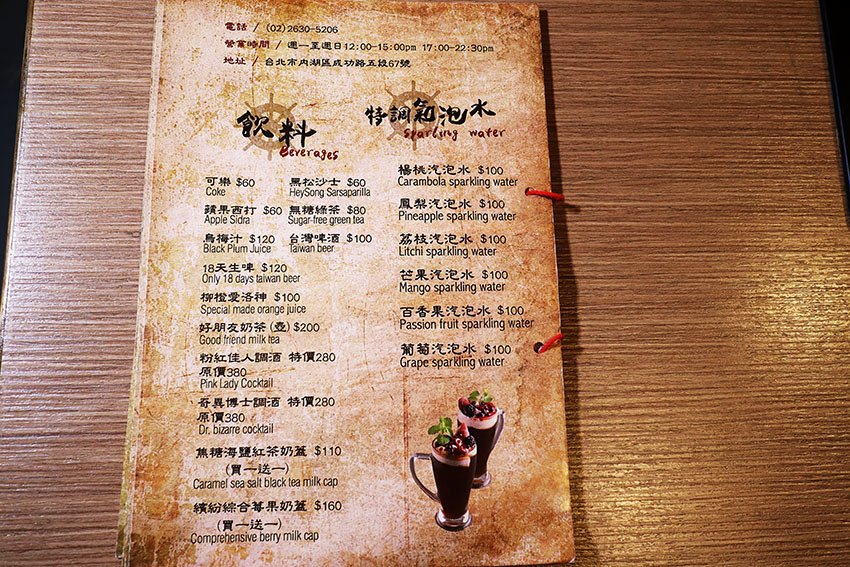 電話 / (02)2630-5206
營業時間 / 週一至週日12:00-15:00pm 17:00-22:30pm
地址 / 台北市內湖區成功路五段67號
飲料
Beverages
可樂 $60
Coke
黑松沙士 $60
HeySong Sarsaparilla
蘋果西打 $60
Apple Sidra
無糖綠茶 $80
Sugar-free green tea
烏梅汁 $120
Black Plum Juice
台灣啤酒 $100
Taiwan beer
18天生啤 $120
Only 18 days taiwan beer
柳橙愛洛神 $100
Special made orange juice
好朋友奶茶(壺) $200
Good friend milk tea
粉紅佳人調酒 特價280
原價380
Pink Lady Cocktail
奇異博士調酒 特價280
原價380
Dr. bizarre cocktail
焦糖海鹽紅茶奶蓋 $110
(買一送一)
Caramel sea salt black tea milk cap
繽紛綜合莓果奶蓋 $160
(買一送一)
Comprehensive berry milk cap
特調氣泡水
Sparling water
楊桃汽泡水 $100
Carambola sparkling water
鳳梨汽泡水 $100
Pineapple sparkling water
荔枝汽泡水 $100
Litchi sparkling water
芒果汽泡水 $100
Mango sparkling water
百香果汽泡水 $100
Passion fruit sparkling water
葡萄汽泡水 $100
Grape sparkling water